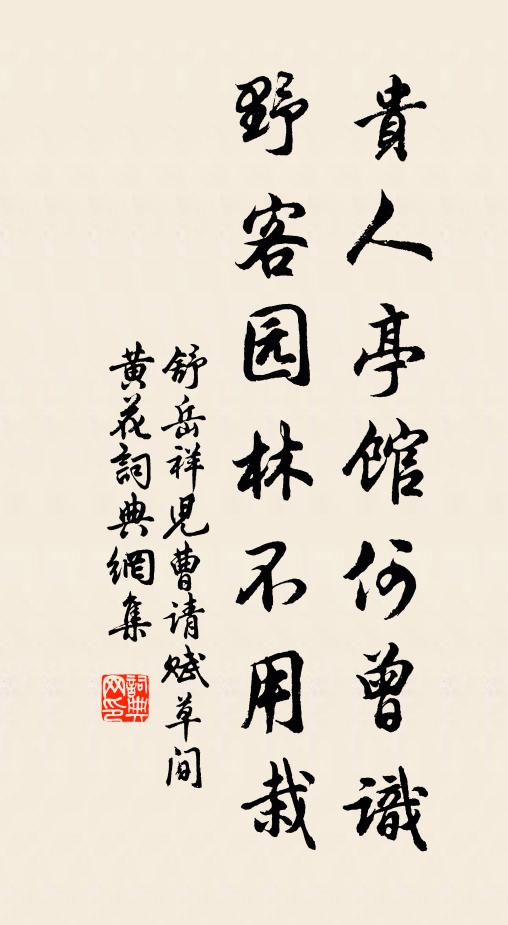 貴人亭館何曾識
野客园林不用栽
舒岳祥児曹请赋草间
黄花詞典網集
詞典网印